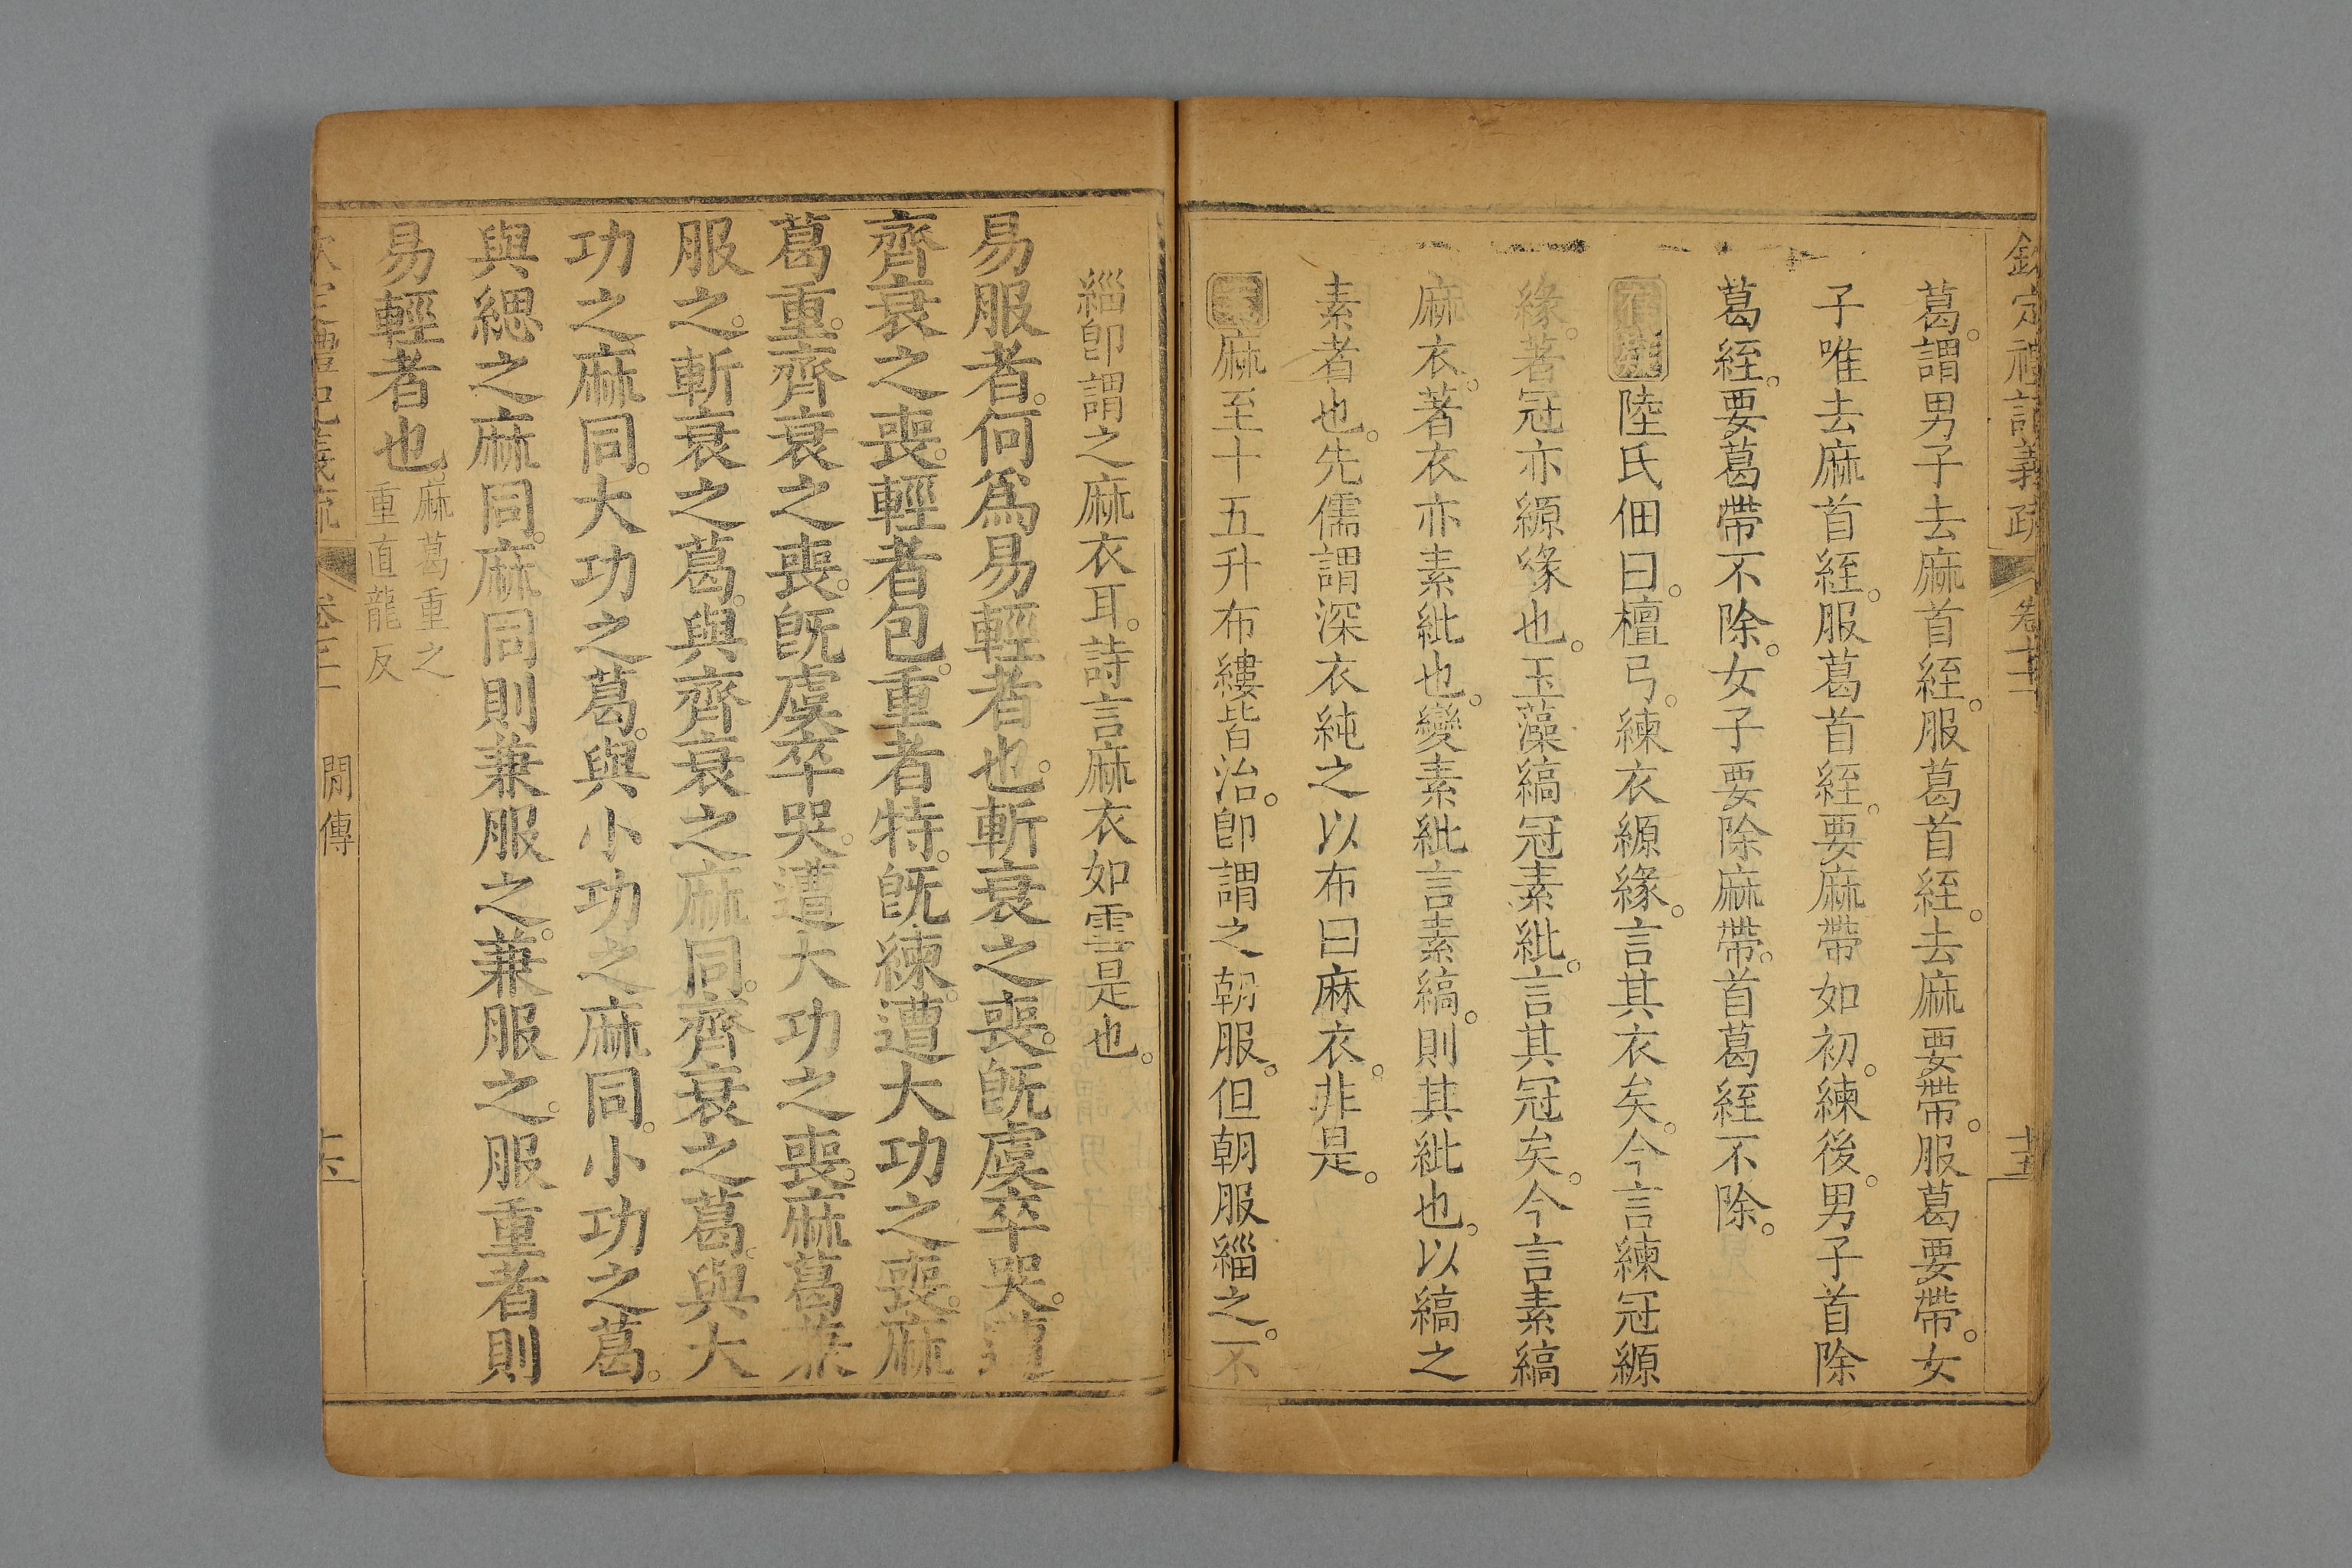 欽定禮記義疏 卷 十五
葛。謂男子去麻首絰。服葛首絰。去麻要帶。服葛要帶。女
子唯去麻首絰。服葛首絰。要麻帶如初。練後。男子首除
葛絰。要葛帶不除。女子要除麻帶。首葛絰不除。
陸氏佃曰。檀弓。練衣縓緣。言其衣矣。今言練冠縓
緣。著冠亦縓緣也。玉藻縞冠素紕。言其冠矣。今言素縞
麻衣。著衣亦素紕也。變素紕言素縞。則其紕也。以縞之
素者也。先儒謂深衣純之以布曰麻衣。非是。
麻至十五升布縷皆治。卽謂之朝服。但朝服緇之。不
緇卽謂之麻衣耳。詩言麻衣如雪是也。
易服者。何爲易輕者也。斬衰之喪。旣虞卒哭。遭
齊衰之喪。輕者包。重者特。旣練。遭大功之喪。麻
葛重。齊衰之喪。旣虞卒哭。遭大功之喪。麻葛兼
服之。斬衰之葛。與齊衰之麻同。齊衰之葛。與大
功之麻同。大功之葛。與小功之麻同。小功之葛。
與緦之麻同。麻同則兼服之。兼服之。服重者則
易輕者也 麻葛重之
重直龍反
禮記義疏 卷 間傳